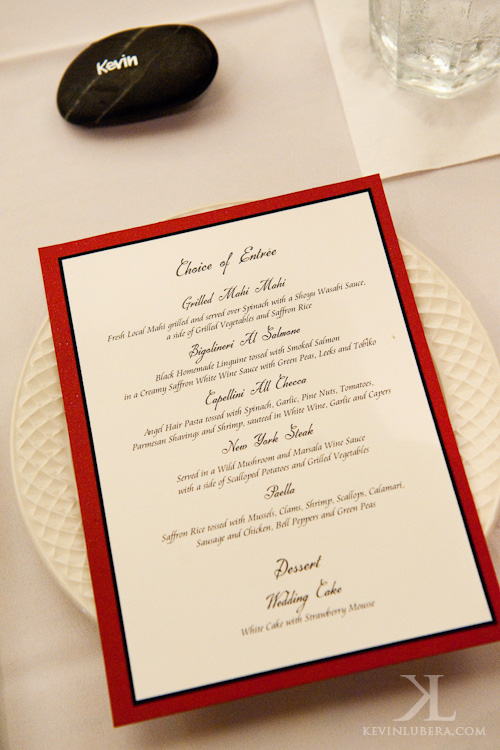 Kevin
Choice of Entrée
Grilled Mahi Mahi
Fresh Local Mahi grilled and served over Spinach with a Shoyu Wasabi Sauce,
a side of Grilled Vegetables and Saffron Rice
Bigolineri Al Salmone
Black Homemade Linguine tossed with Smoked Salmon
in a Creamy Saffron White Wine Sauce with Green Peas, Leeks and Tobiko
Capellini All Checca
Angel Hair Pasta tossed with Spinach, Garlic, Pine Nuts, Tomatoes,
Parmesan Shavings and Shrimp, sauteed in White Wine, Garlic and Capers
New York Steak
Served in a Wild Mushroom and Marsala Wine Sauce
with a side of Scalloped Potatoes and Grilled Vegetables
Paella
Saffron Rice tossed with Mussels, Clams, Shrimp, Scallops, Calamari,
Sausage and Chicken, Bell Peppers and Green Peas
Dessert
Wedding Cake
White Cake with Strawberry Mousse
KL
KEVINLUBERA.COM